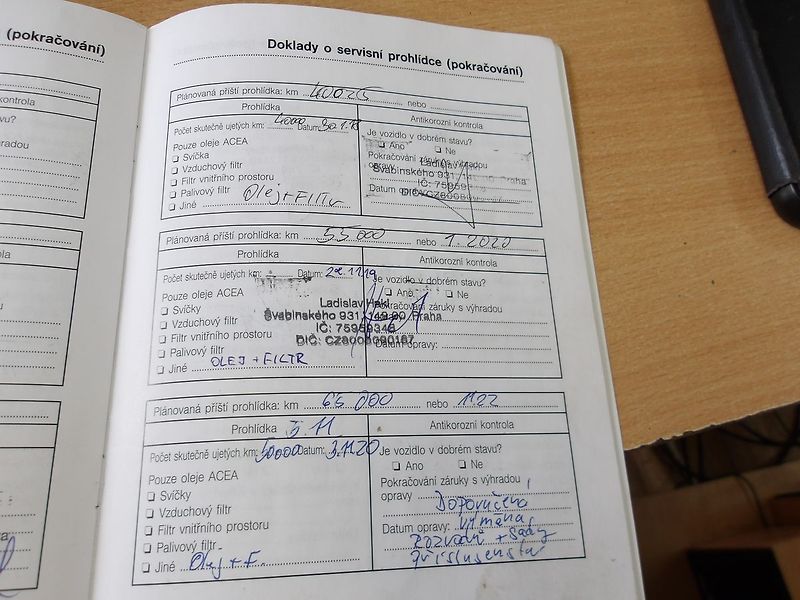 (pokračování)
kontrola
vu?
hradou
Doklady o servisní prohlídce (pokračování)
Plánovaná příští prohlídka: km 40025 nebo
Prohlídka
Antikorozní kontrola
Počet skutečně ujetých km: Datum: 30.1.18
Je vozidlo v dobrém stavu?
Ano Ne
Pouze oleje ACEA
Pokračování záruky s výhradou
opravy
Svíčka
Vzduchový filtr
Filtr vnitřního prostoru
Palivový filtr
Jiné Olej + Filtr
Datum opravy
Ladislav
Švabinského 931, Praha
IČ: 75959
Plánovaná příští prohlídka: km 55 000 nebo 1.2020
Prohlídka
Antikorozní kontrola
Počet skutečně ujetých km: Datum:
Je vozidlo v dobrém stavu?
Ano Ne
Pouze oleje ACEA
Pokračování záruky s výhradou
Svíčky
Vzduchový filtr
Filtr vnitřního prostoru
Palivový filtr
Jiné OLEJ + FILTR
Datum opravy:
Ladislav
Švabinského 931, 149 00 Praha
IČ: 75959346
Plánovaná příští prohlídka: km 65 000 nebo 1.22
Prohlídka 3.11
Antikorozní kontrola
Počet skutečně ujetých km: 50000 Datum: 3.11.20
Je vozidlo v dobrém stavu?
Ano Ne
Pouze oleje ACEA
Pokračování záruky s výhradou
opravy
Svíčky
Vzduchový filtr
Filtr vnitřního prostoru
Palivový filtr
Jiné Olej + F.
Doporučena
Datum opravy: výměna
rozvodů + sady
příslušenství